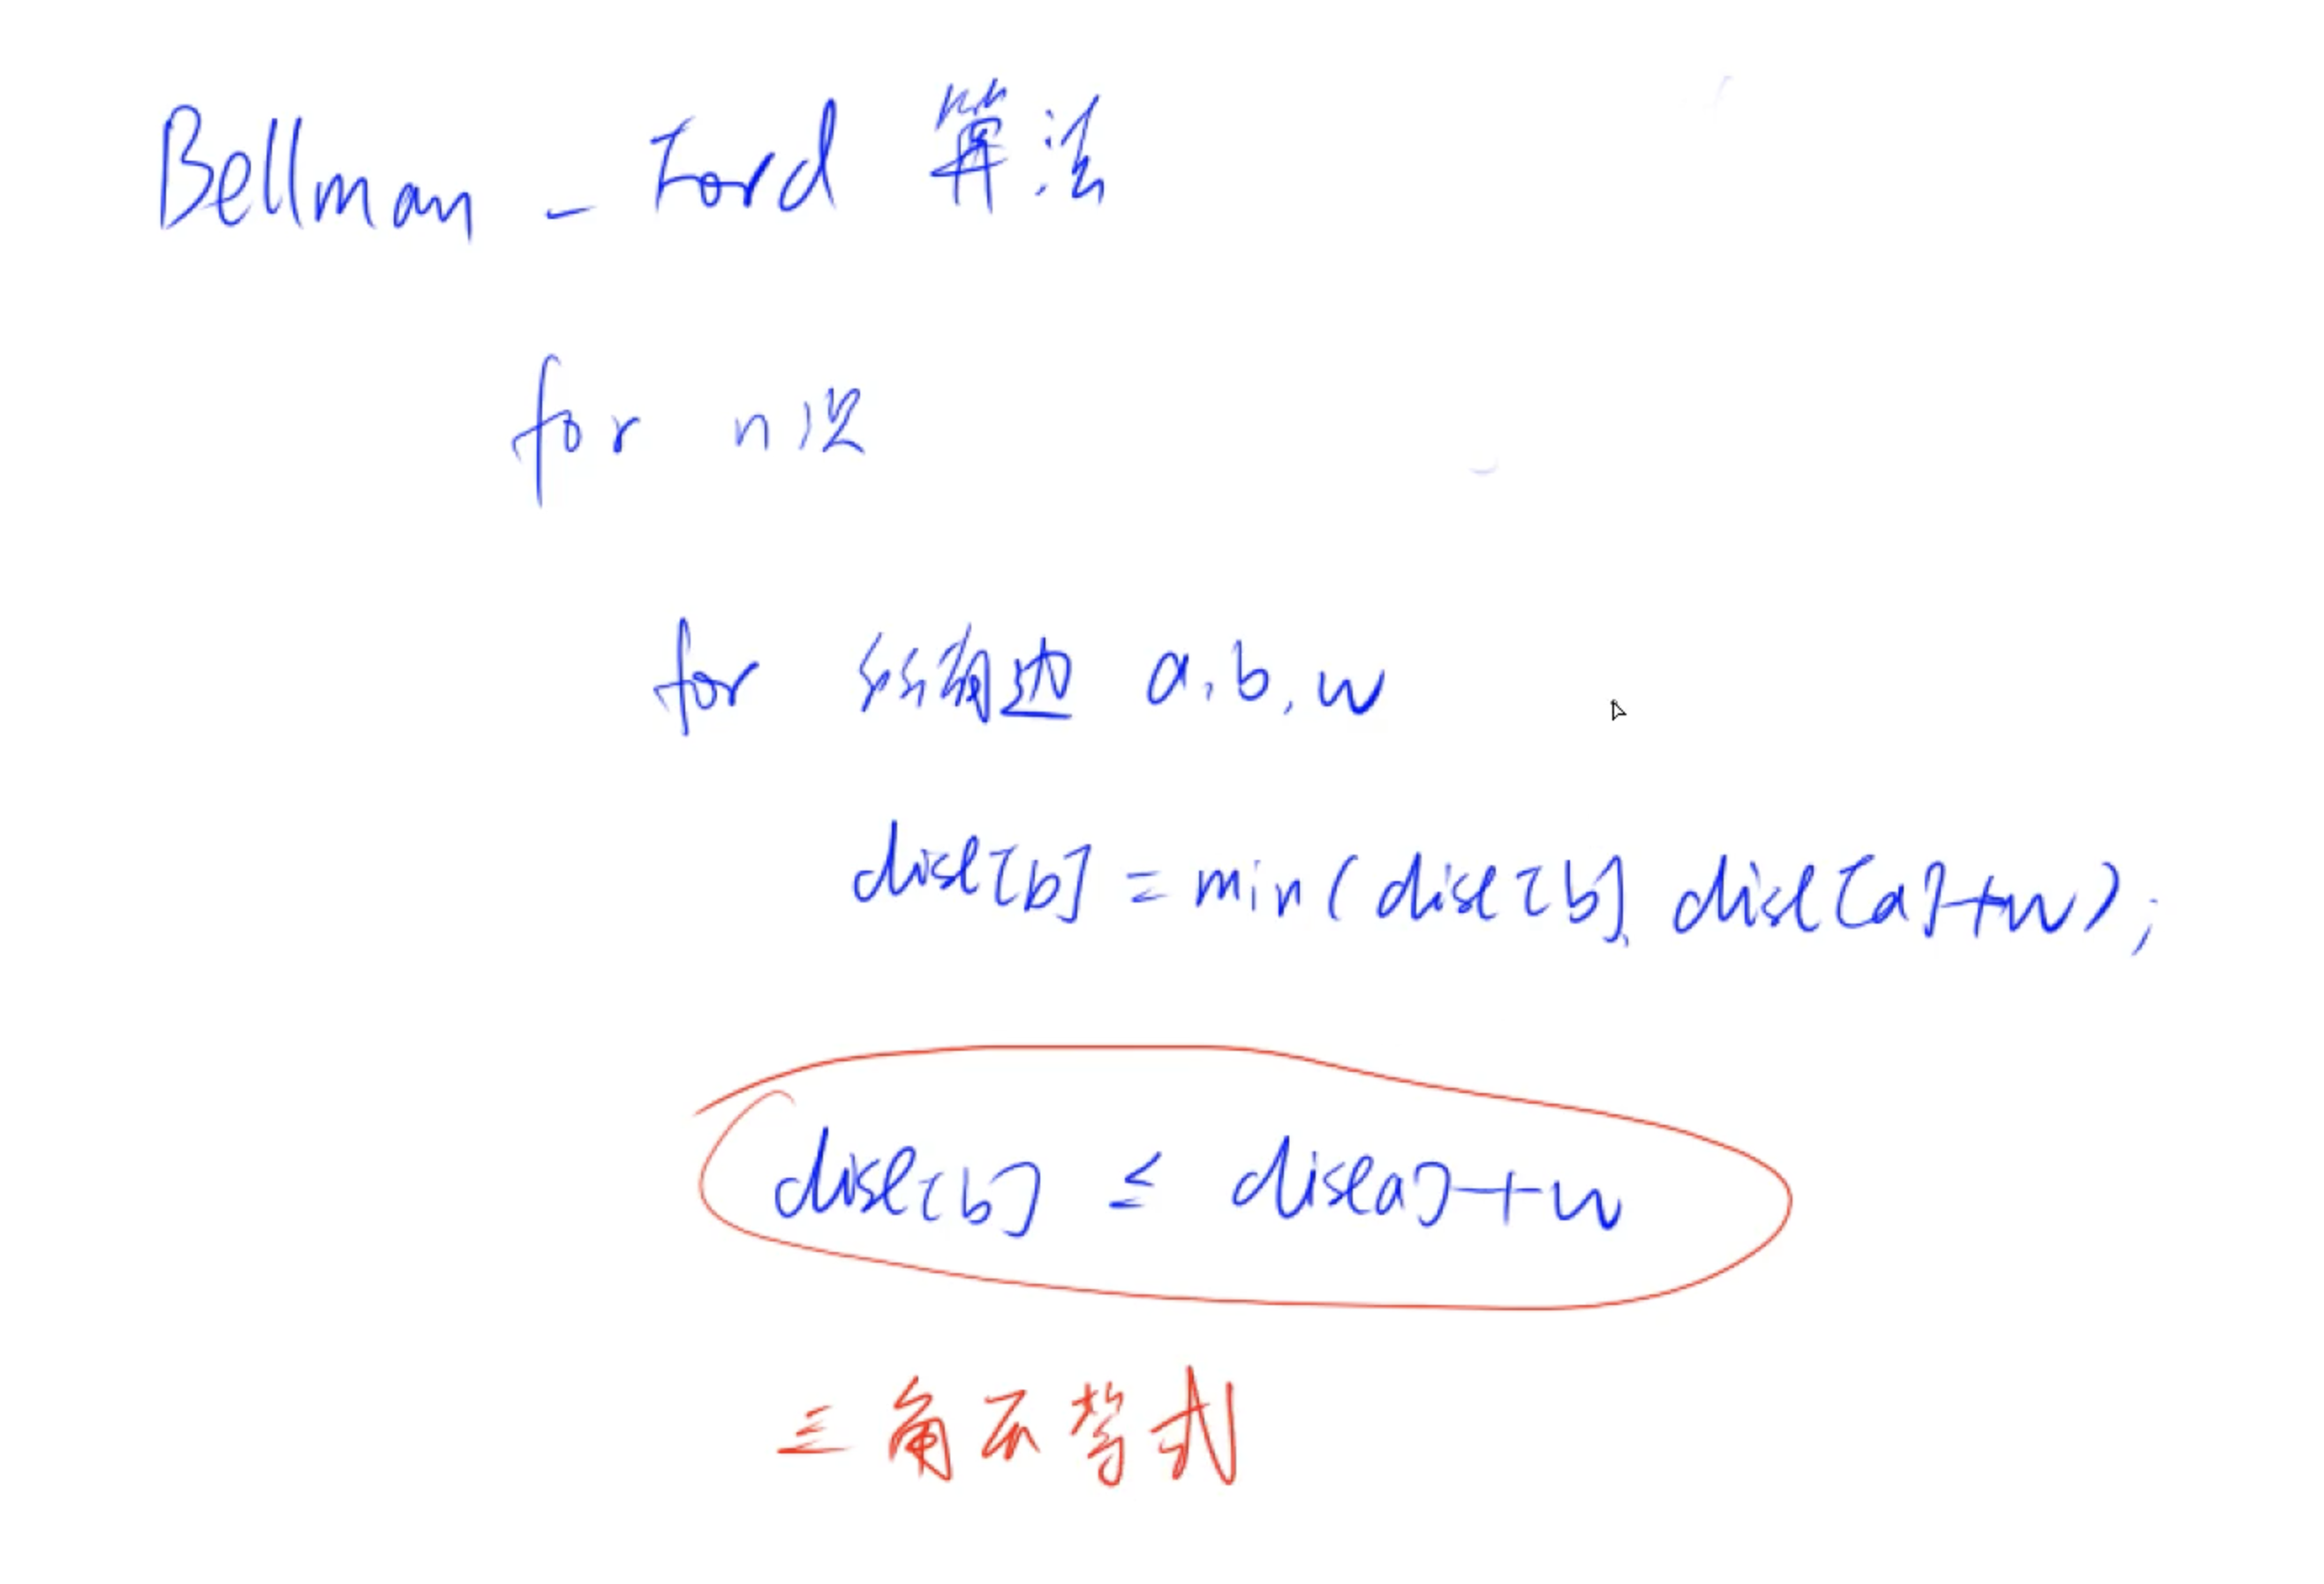 Bellman - Ford 算法
for n次
for 所有边 a, b, w
dist[b] = min(dist[b], dist[a]+w);
dist[b] ≤ dist[a]+w
三角不等式